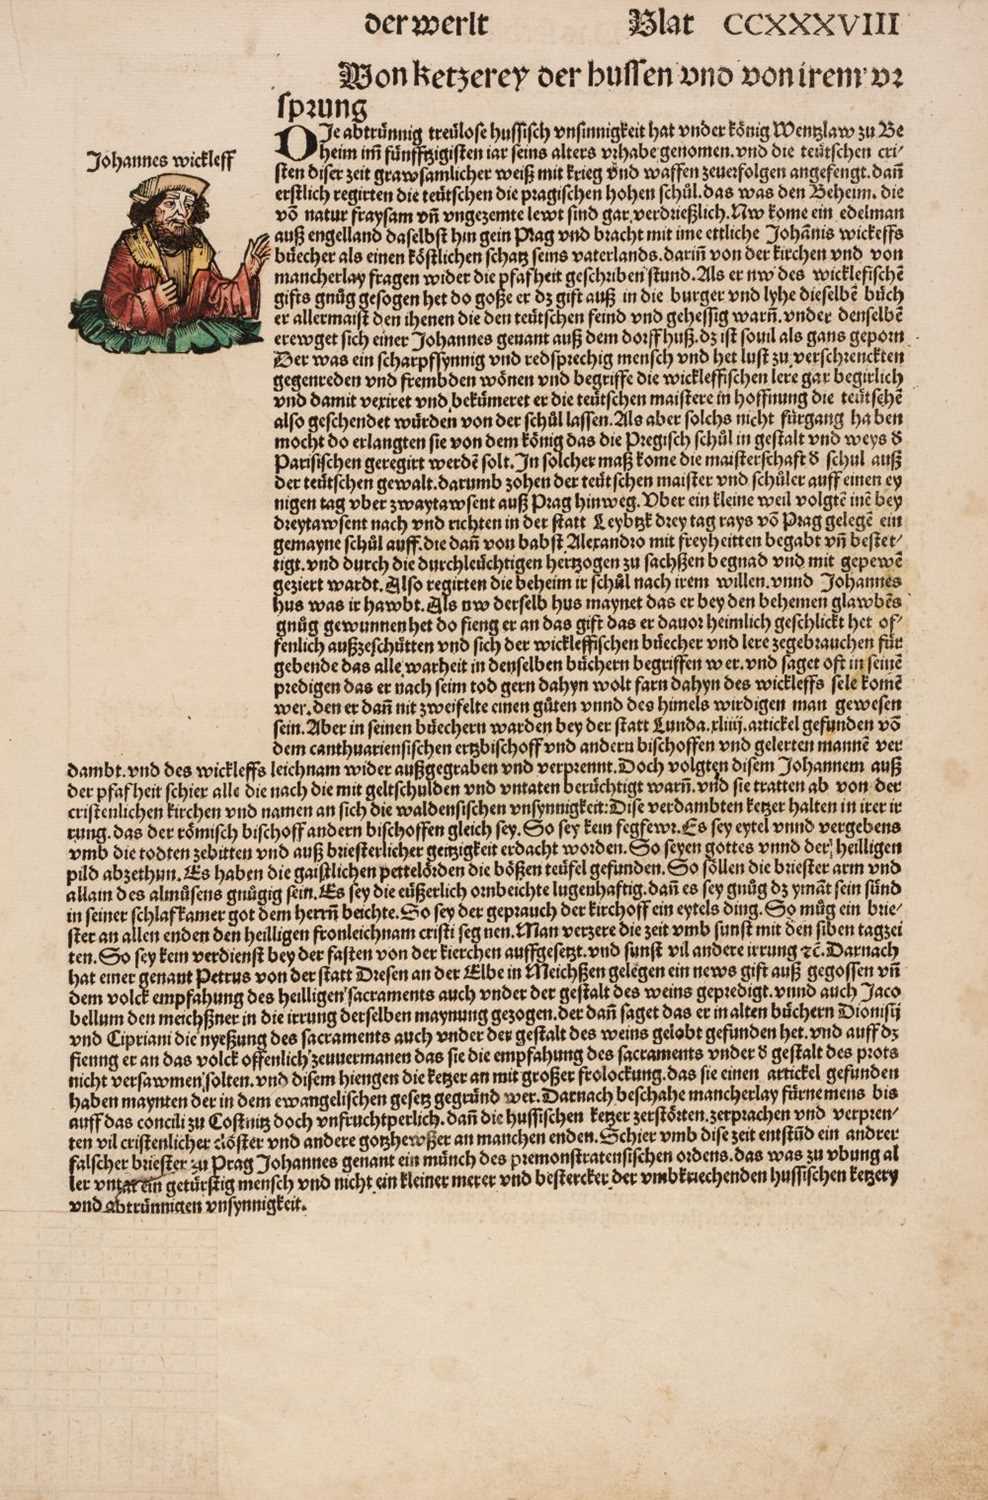 der werlt Blat CCXXXVIII
Von ketzerey der hussen vnd von irem vr
sprung
Johannes wickleff
DJe abtrünnig treülose hussisch vnsinnigkeit hat vnder könig Wentzlaw zu Be
heim im̃ fünfftzigisten iar seins alters vrhabe genomen. vnd die teütschen cri-
sten diser zeit grawsamlicher weiß mit krieg vnd waffen zeuerfolgen angefengt. dañ
erstlich regirten die teütschen die pragischen hohen schůl. das was den Beheim. die
võ natur fraysam vñ vngezemte lewt sind gar verdrießlich. Nw kome ein edelman
auß engelland daselbst hin gein Prag vnd bracht mit ime ettliche Johãnis wickeffs
büecher als einen köstlichen schatz seins vaterlands. dariñ von der kirchen vnd von
mancherlay fragen wider die pfafheit geschriben stund. Als er nw des wicklefischẽ
gifts gnůg gesogen het do goße er dz gift auß in die burger vnd lyhe dieselbẽ büch
er allermaist den ihenen die den teütschen feind vnd gehessig warñ. vnder denselbẽ
erewget sich einer Johannes genant auß dem dorff huß. dz ist souil als gans geporn
Der was ein scharpfsynnig vnd redsprechig mensch vnd het lust zu verschrenckten
gegenreden vnd frembden wönen vnd begriffe die wickleffischen lere gar begirlich
vnd damit vexiret vnd bekümeret er die teütschen maistere in hoffnung die teütschẽ
also geschendet würden von der schůl lassen. Als aber solchs nicht fürgang haben
mocht do erlangten sie von dem könig das die Pregisch schůl in gestalt vnd weys d̕
Parisischen geregirt werdẽ solt. In solcher maß kome die maisterschaft d̕ schul auß
der teütschen gewalt. darumb zohen der teütschen maister vnd schůler auff einen ey
nigen tag vber zwaytawsent auß Prag hinweg. Vber ein kleine weil volgtẽ inẽ bey
dreytawsent nach vnd richten in der statt Leybtzk drey tag rays võ Prag gelegẽ ein
gemayne schůl auff. die dañ von babst Alexandro mit freyheitten begabt vñ bestet-
tigt. vnd durch die durchleüchtigen hertzogen zu sachßen begnad vnd mit gepewẽ
geziert wardt. Also regirten die beheim ir schůl nach irem willen. vnnd Johannes
hus was ir hawbt. Als nw derselb hus maynet das er bey den behemen glawbẽs
gnůg gewunnen het do fieng er an das gift das er dauor heimlich geschlickt het of-
fenlich außzeschütten vnd sich der wickleffischen büecher vnd lere zegebrauchen für
gebende das alle warheit in denselben büchern begriffen wer. vnd saget oft in seinẽ
predigen das er nach seim tod gern dahyn wolt farn dahyn des wickleffs sele komẽ
wer. den er dañ nit zweifelte einen gůten vnnd des himels wirdigen man gewesen
sein. Aber in seinen büechern warden bey der statt Lunda. xliiij. artickel gefunden võ
dem canthuariensischen ertzbischoff vnd andern bischoffen vnd gelerten mannẽ ver
dambt. vnd des wickleffs leichnam wider außgegraben vnd verprennt. Doch volgten disem Johannem auß
der pfafheit schier alle die nach die mit geltschulden vnd vntaten berüchtigt warñ. vnd sie tratten ab von der
cristenlichen kirchen vnd namen an sich die waldensischen vnsynnigkeit. Dise verdambten ketzer halten in irer ir
rung. das der römisch bischoff andern bischoffen gleich sey. So sey kein fegfewr. Es sey eytel vnnd vergebens
vmb die todten zebitten vnd auß briesterlicher geitzigkeit erdacht worden. So seyen gottes vnnd der heilligen
pild abzethun. Es haben die gaistlichen pettelörden die bößen teüfel gefunden. So söllen die briester arm vnd
allain des almůsens gnügig sein. Es sey die eüßerlich ornbeichte lugenhaftig. dañ es sey gnůg dz ymãt sein sünd
in seiner schlafkamer got dem herrñ beichte. So sey der geprauch der kirchoff ein eytels ding. So můg ein brie-
ster an allen enden den heilligen fronleichnam cristi segnen. Man verzere die zeit vmb sunst mit den siben tagzei
ten. So sey kein verdienst bey der fasten von der kierchen auffgesetzt. vnd sunst vil andere irrung ⁊c̃. Darnach
hat einer genant Petrus von der statt Dresen an der Elbe in Meichßen gelegen ein news gift auß gegossen vñ
dem volck empfahung des heilligen sacraments auch vnder der gestalt des weins gepredigt. vnnd auch Jaco
bellum den meichßner in die irrung derselben maynung gezogen. der dañ saget das er in alten büchern Dionisij
vnd Cipriani die nyeßung des sacraments auch vnder der gestalt des weins gelobt gefunden het. vnd auff dz
fienng er an das volck offenlich zeuuermanen das sie die empfahung des sacraments vnder d̕ gestalt des prots
nicht versawmen solten. vnd disem hiengen die ketzer an mit großer frolockung. das sie einen artickel gefunden
haben maynten der in dem ewangelischen gesetz gegründ wer. Darnach beschahe mancherlay fürnemens bis
auff das concili zu Costnitz doch vnfruchtperlich. dañ die hussischen ketzer zerstörten. zerprachen vnd verpren-
ten vil cristenlicher clöster vnd andere gotzhewßer an manchen enden. Schier vmb dise zeit entstũd ein andrer
falscher briester zu Prag Johannes genant ein münch des premonstratensischen ordens. das was zu vbung al
ler vntat ein getürstig mensch vnd nicht ein kleiner merer vnd bestercker der vmbkriechenden hussischen ketzery
vnd abtrünnigen vnsynnigkeit.